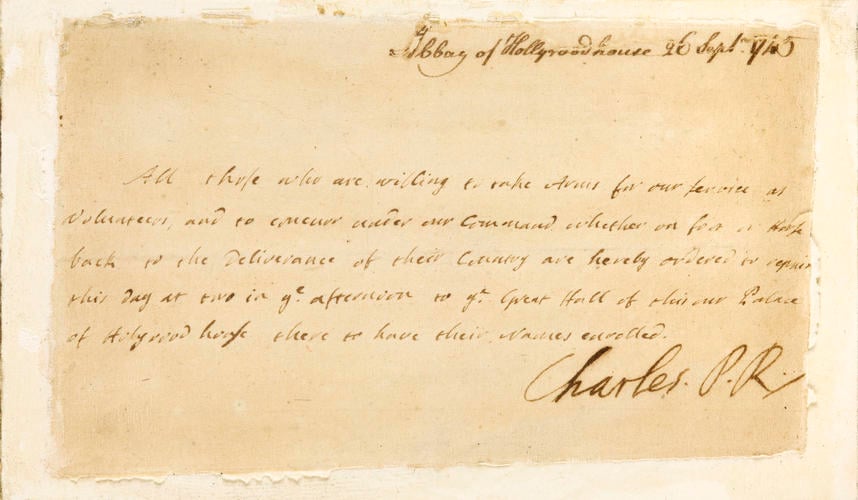 Abbay of Hollyroodhouse 26 Sept. 1745
All those who are willing to take Arms for our Service as
Volunteers, and to concur under our Command whether on foot or Horse
back to the Deliverance of their Country are hereby ordered to repair
this day at two in ye. afternoon to ye. Great Hall of this our Palace
of Holyrood house there to have their Names enrolled.
Charles. P. R.